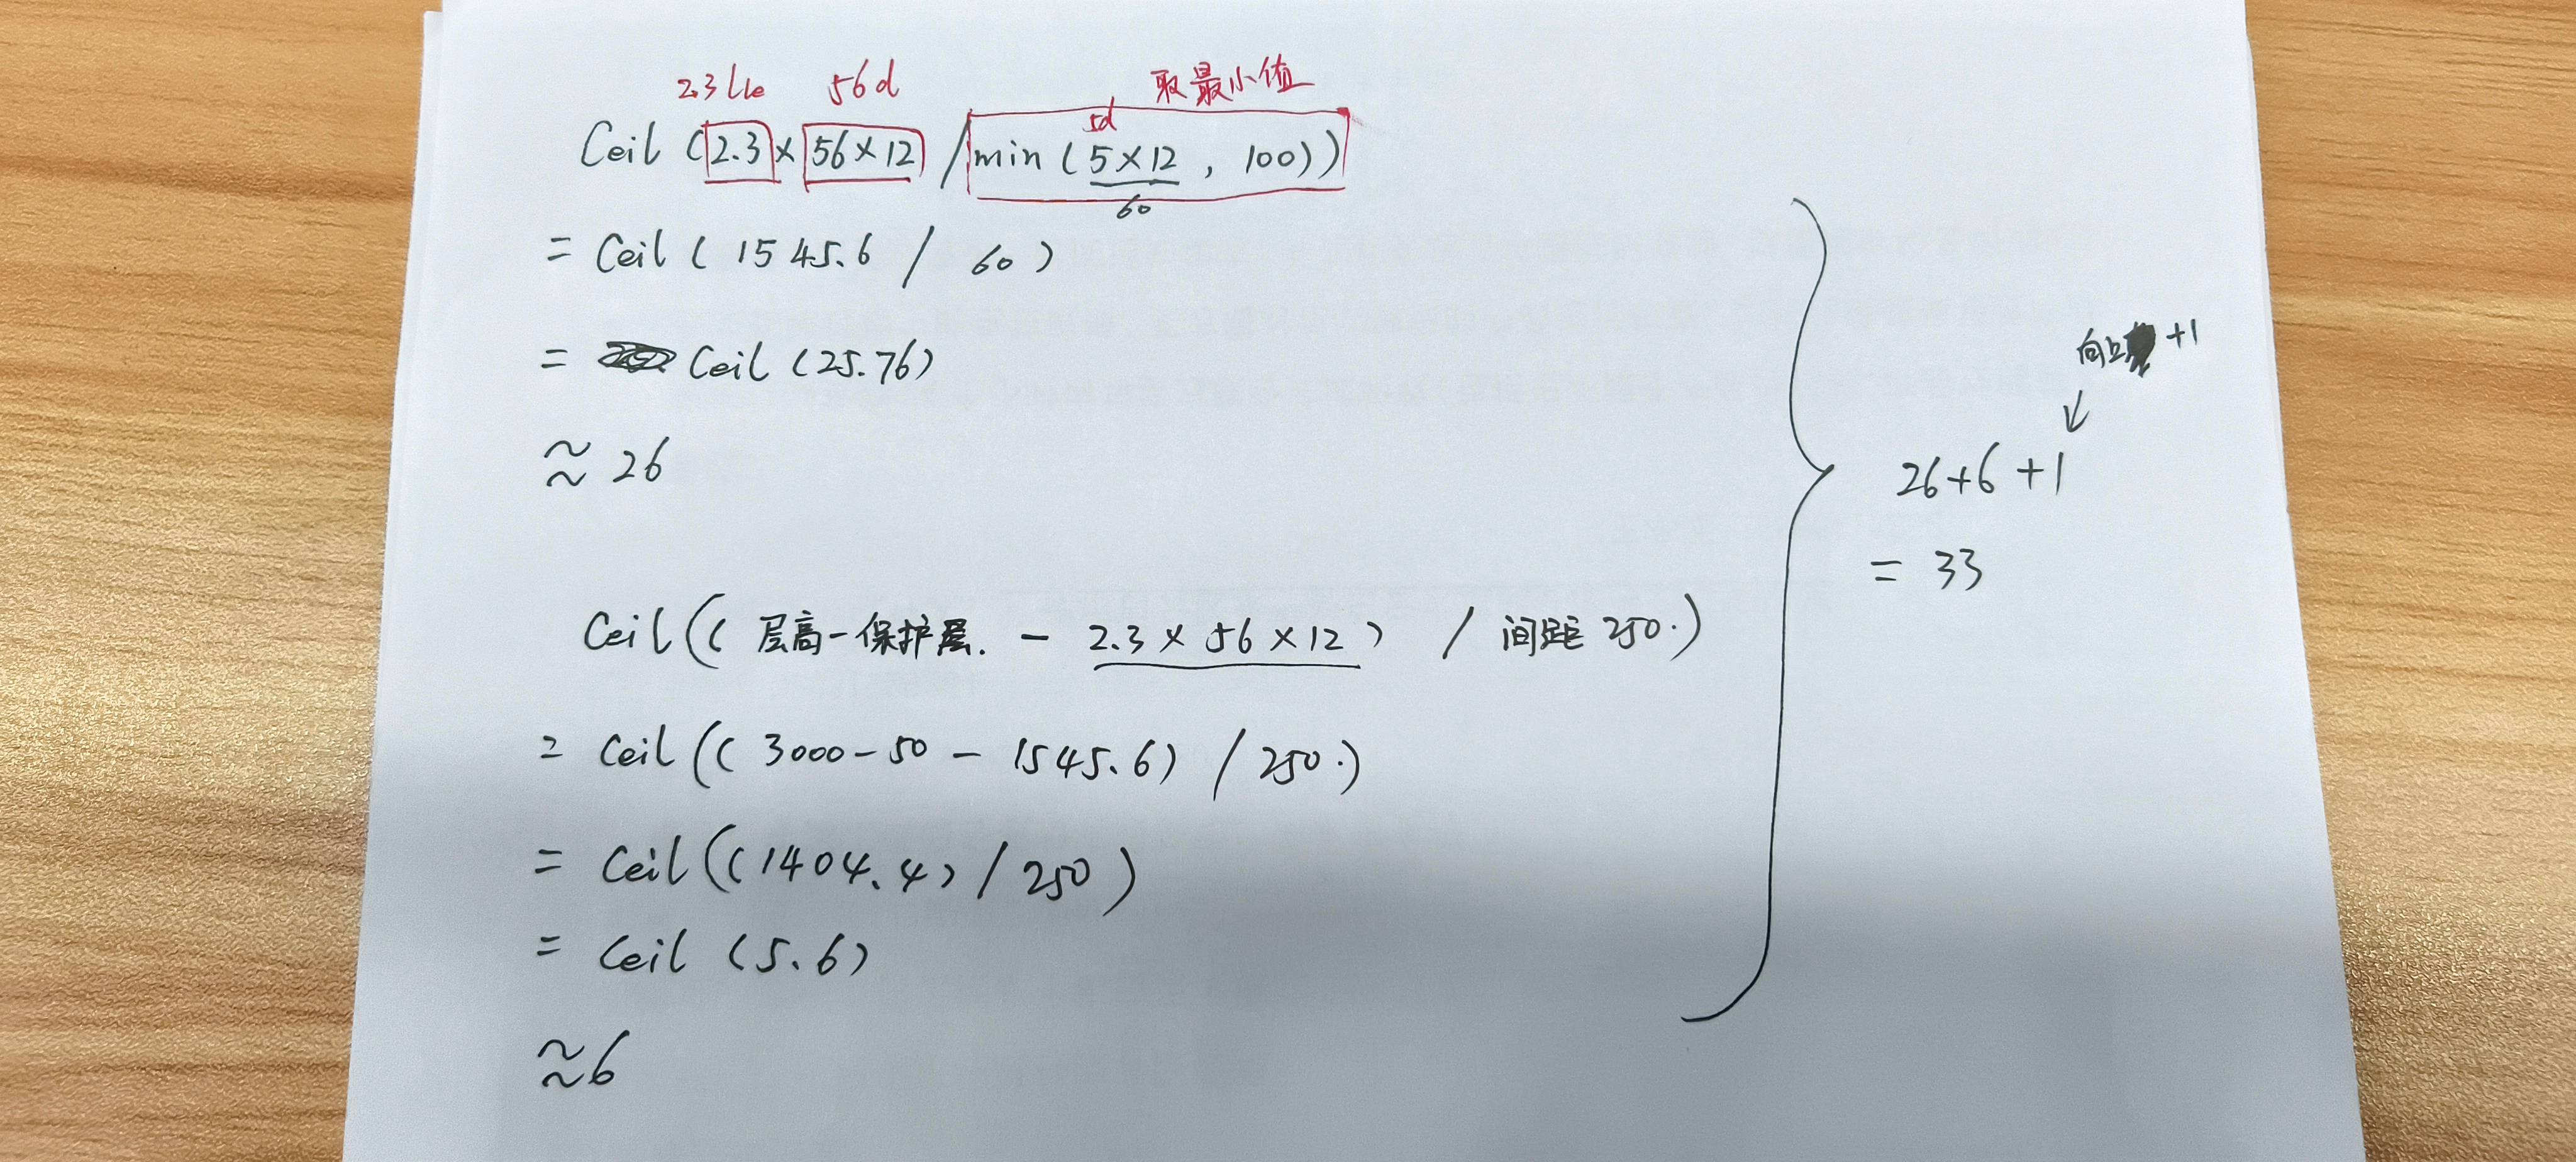 2.3 lle 56d 取最小值
5d
Ceil (2.3 × 56 × 12 / min ( 5 × 12 , 100 ) )
60
= Ceil ( 1545.6 / 60 )
= Ceil (25.76)
≈ 26
Ceil (( 层高-保护层. - 2.3 × 56 × 12 ) / 间距 250.)
= Ceil (( 3000 - 50 - 1545.6) / 250.)
= Ceil (( 1404.4) / 250 )
= Ceil (5.6)
≈ 6
向上 +1
↓
26+6+1
= 33